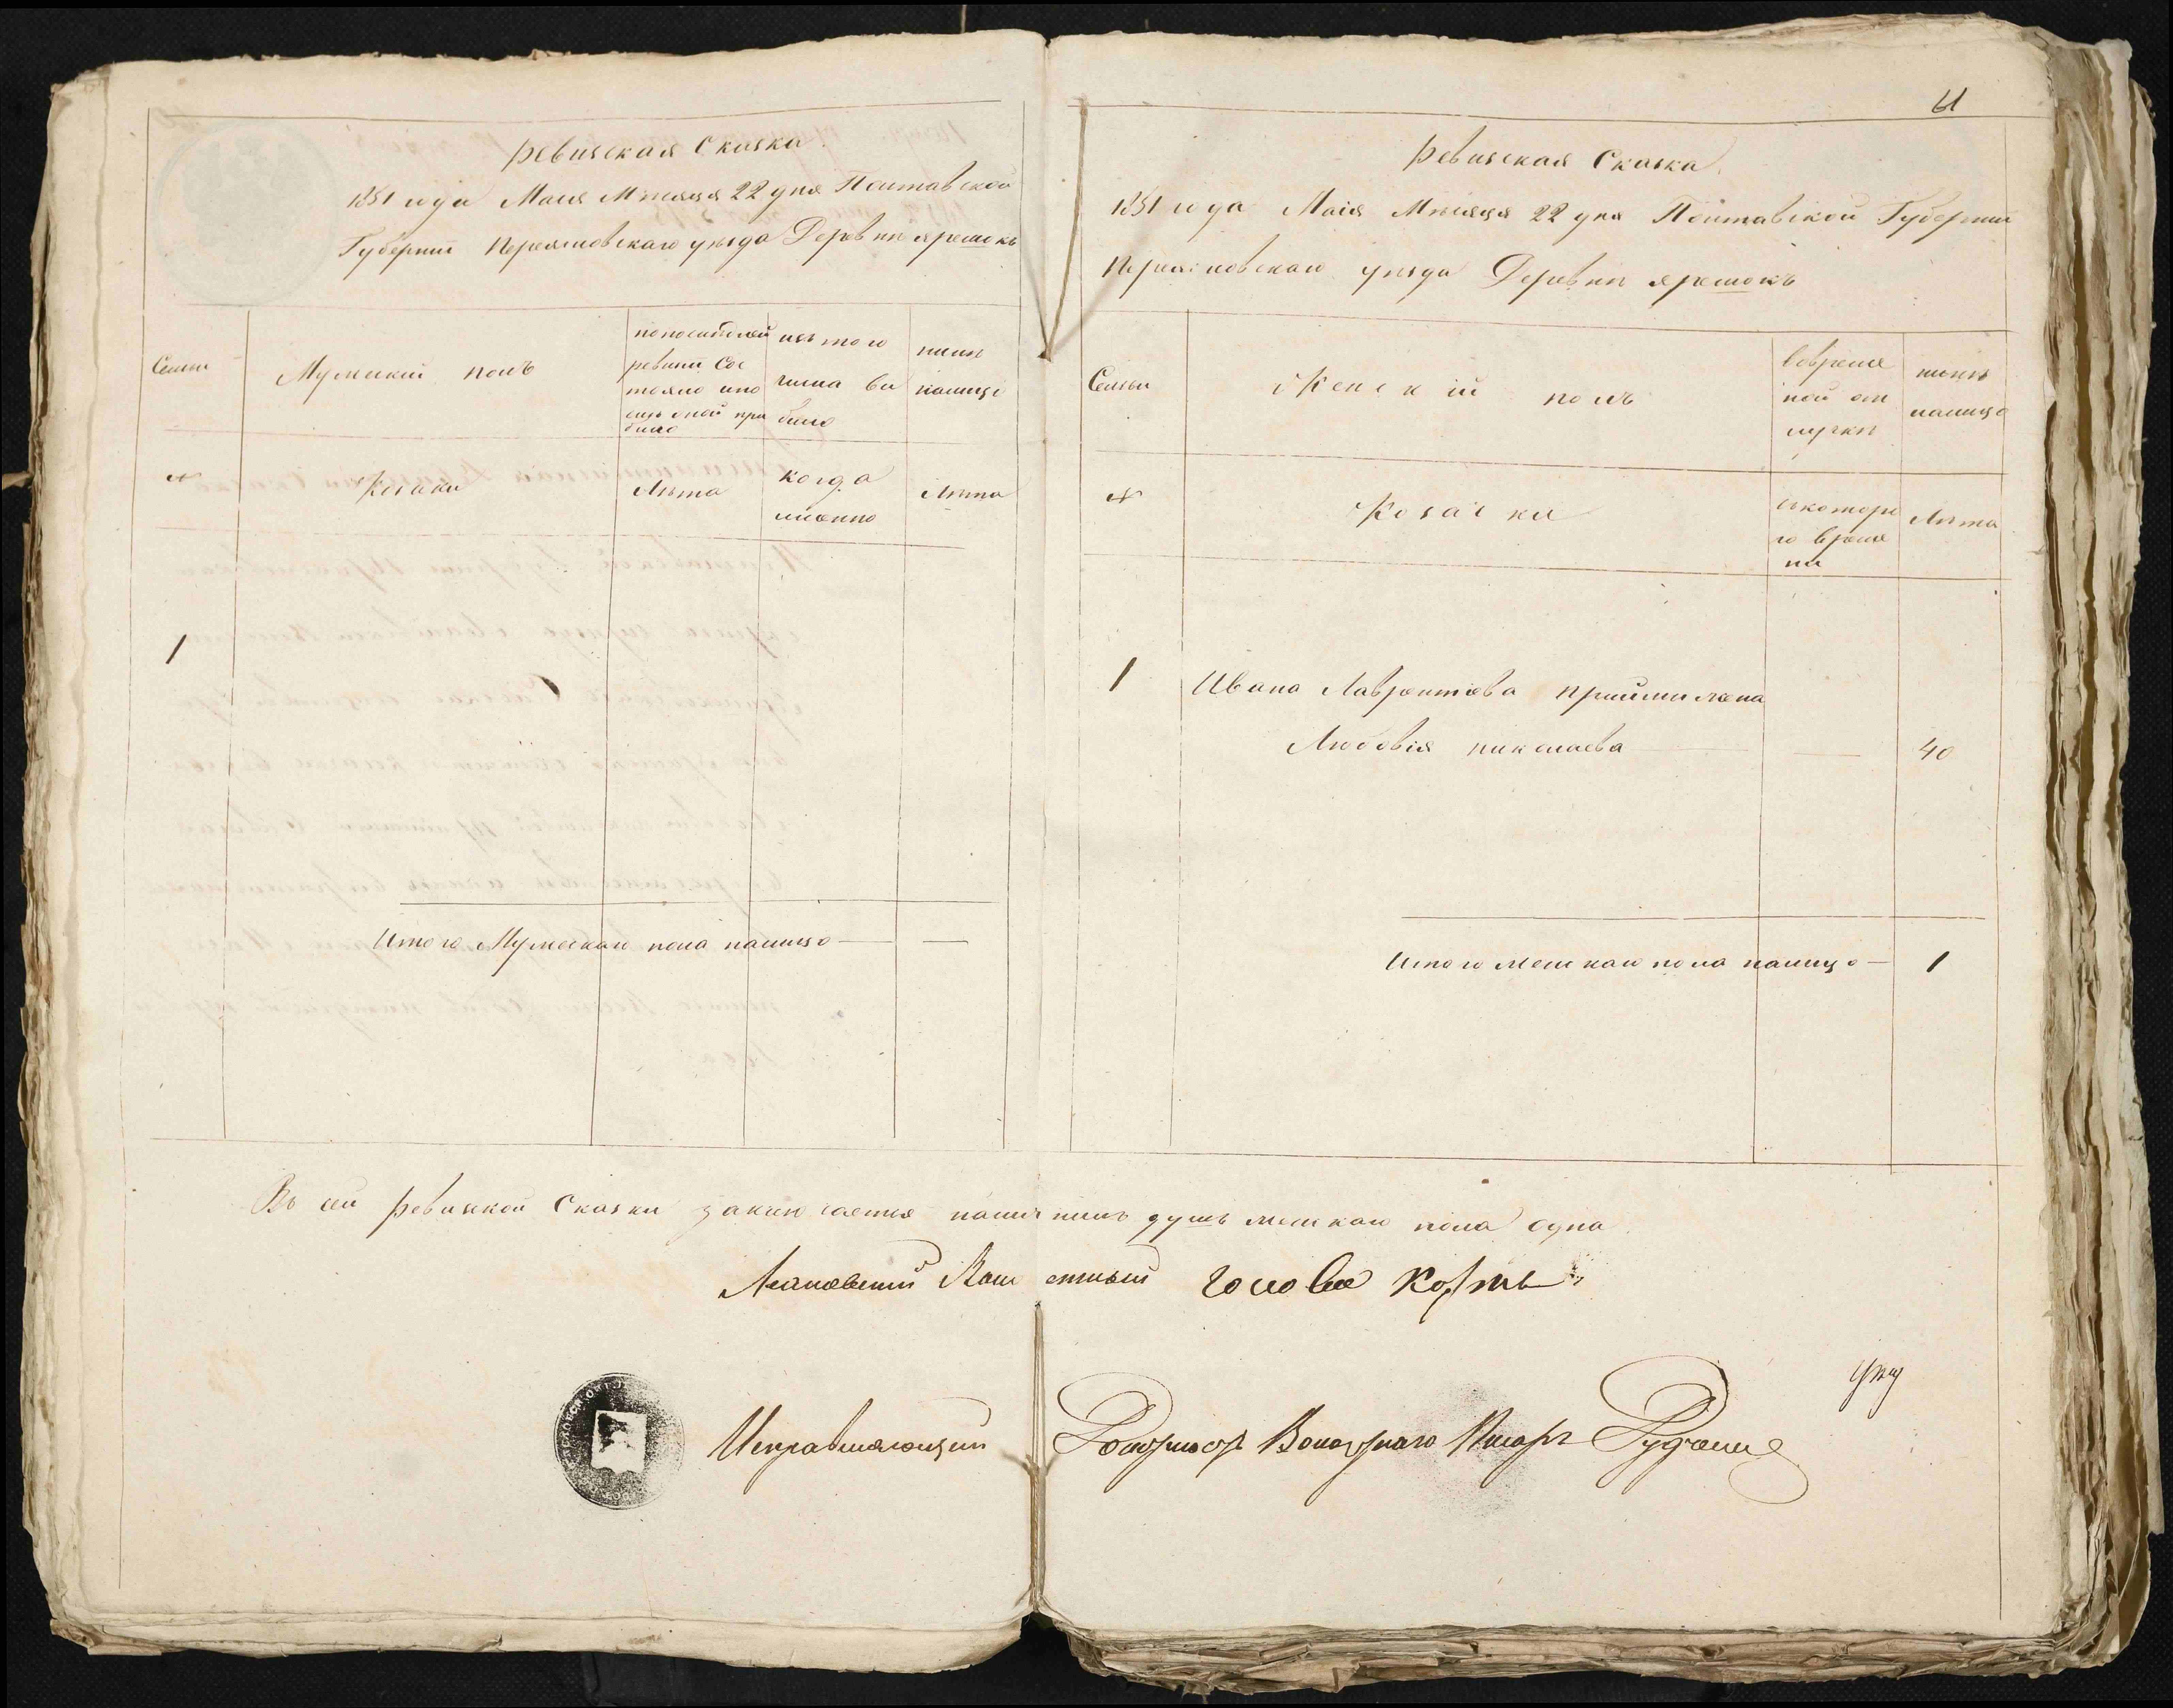 Ревизская Сказка
1851 года Маія Мѣсяця 22 дня Полтавской
Губерніи Переясловскаго уѣзда Деревни Ярешокъ
Семьи
Мужескій полъ
по последней
ревизіи Сос
тояло и по
слѣ оной при
было
изъ того
числа вы
было
нынѣ
налицо
№
Козаки
Лѣта
когда
именно
Лѣта
1
Итого Мужескаго пола налицо — —
61
Ревизская Сказка
1851 года Маія Мѣсяця 22 дня Полтавской Губерніи
Переясловскаго уѣзда Деревни Ярешокъ
Семьи
Женскій полъ
вовреме
ной от
лучки
нынѣ
налицо
№
Козачки
скоторо
го време
ни
Лѣта
1
Ивана Лаврентіева Приймы жена
Любовія Николаева — 40
Итого женскаго пола налицо — 1
Въ сей Ревизской Сказки заключается наличныхъ душъ женскаго пола одна
голова
Исправляющій Волостнаго Писаря